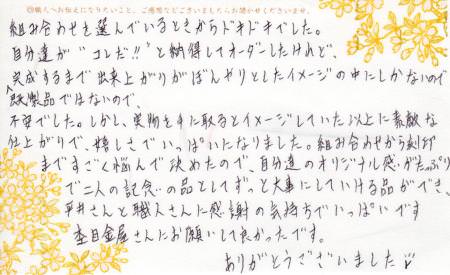 ⑬職人へお伝えになりたいこと、ご感想などございましたらお聞かせくださいませ。
組み合わせを選んでいるときからドキドキでした。
自分達が“コレだ!!”と納得してオーダーしたけれど、
完成するまで出来上がりがぼんやりとしたイメージの中にしかないので
既製品ではないので、
不安でした。しかし、実物を手に取るとイメージしていた以上に素敵な
仕上がりで、嬉しさでいっぱいになりました。組み合わせから刻印
まですごく悩んで決めたので、自分達のオリジナル感がたっぷり
で二人の記念の品としてずっと大事にしていける品ができ、
平井さんと職人さんに感謝の気持ちでいっぱいです
杢目金屋さんにお願いして良かったです。
ありがとうございました